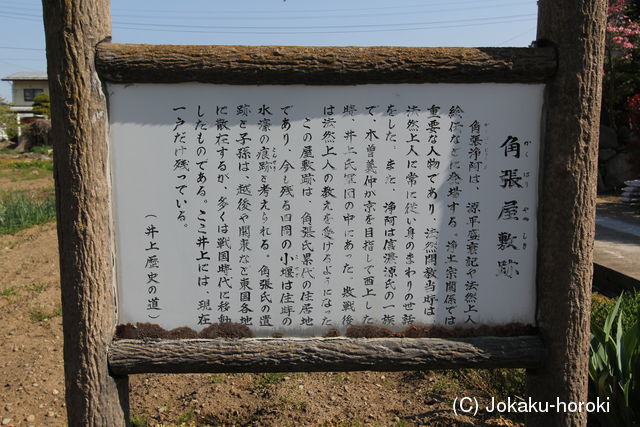 角張屋敷跡
かくばりやしき
角張浄阿は、源平盛衰記や法然上人
絵伝などに登場する。浄土宗関係では
重要な人物であり、法然開教当時は
法然上人に常に従い身のまわりの世話
をした。また、浄阿は信濃源氏の一族
で、木曽義仲が京を目指して西上した
時、井上氏軍団の中にあった。敗戦後
は法然上人の教えを受けるようになった
この屋敷跡は、角張氏累代の住居地
であり、今も残る四囲の小堰は往時の
水濠の痕跡と考えられる。角張氏の遺
跡と子孫は、越後や関東など東国各地
に散在するが、多くは戦国時代に移動
したものである。ここ井上には、現在
一戸だけ残っている。
(井上歴史の道)
(C) Jokaku-horoki